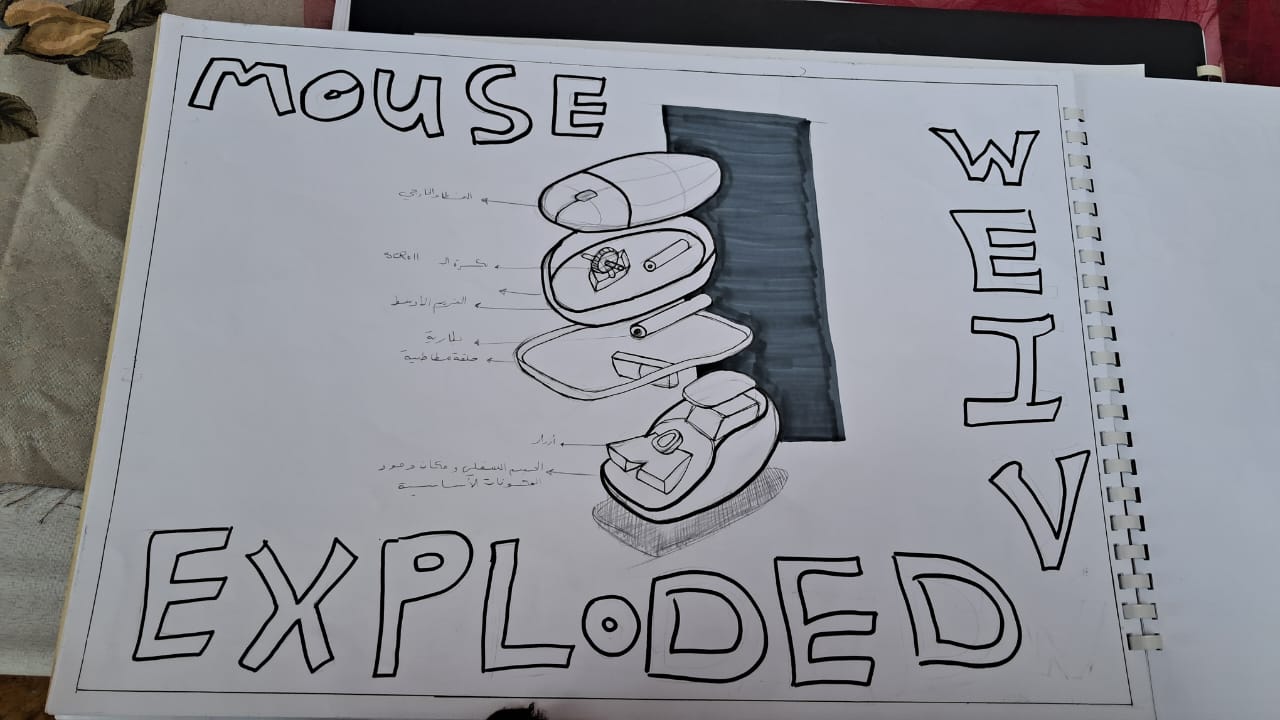 MOUSE
EXPLODED
VIEW
الغطاء الخارجي
بكرة الـ scroll
القسم الأوسط
بطارية
حلقة مطاطية
أزرار
القسم السفلي و مكان وجود
المكونات الأساسية